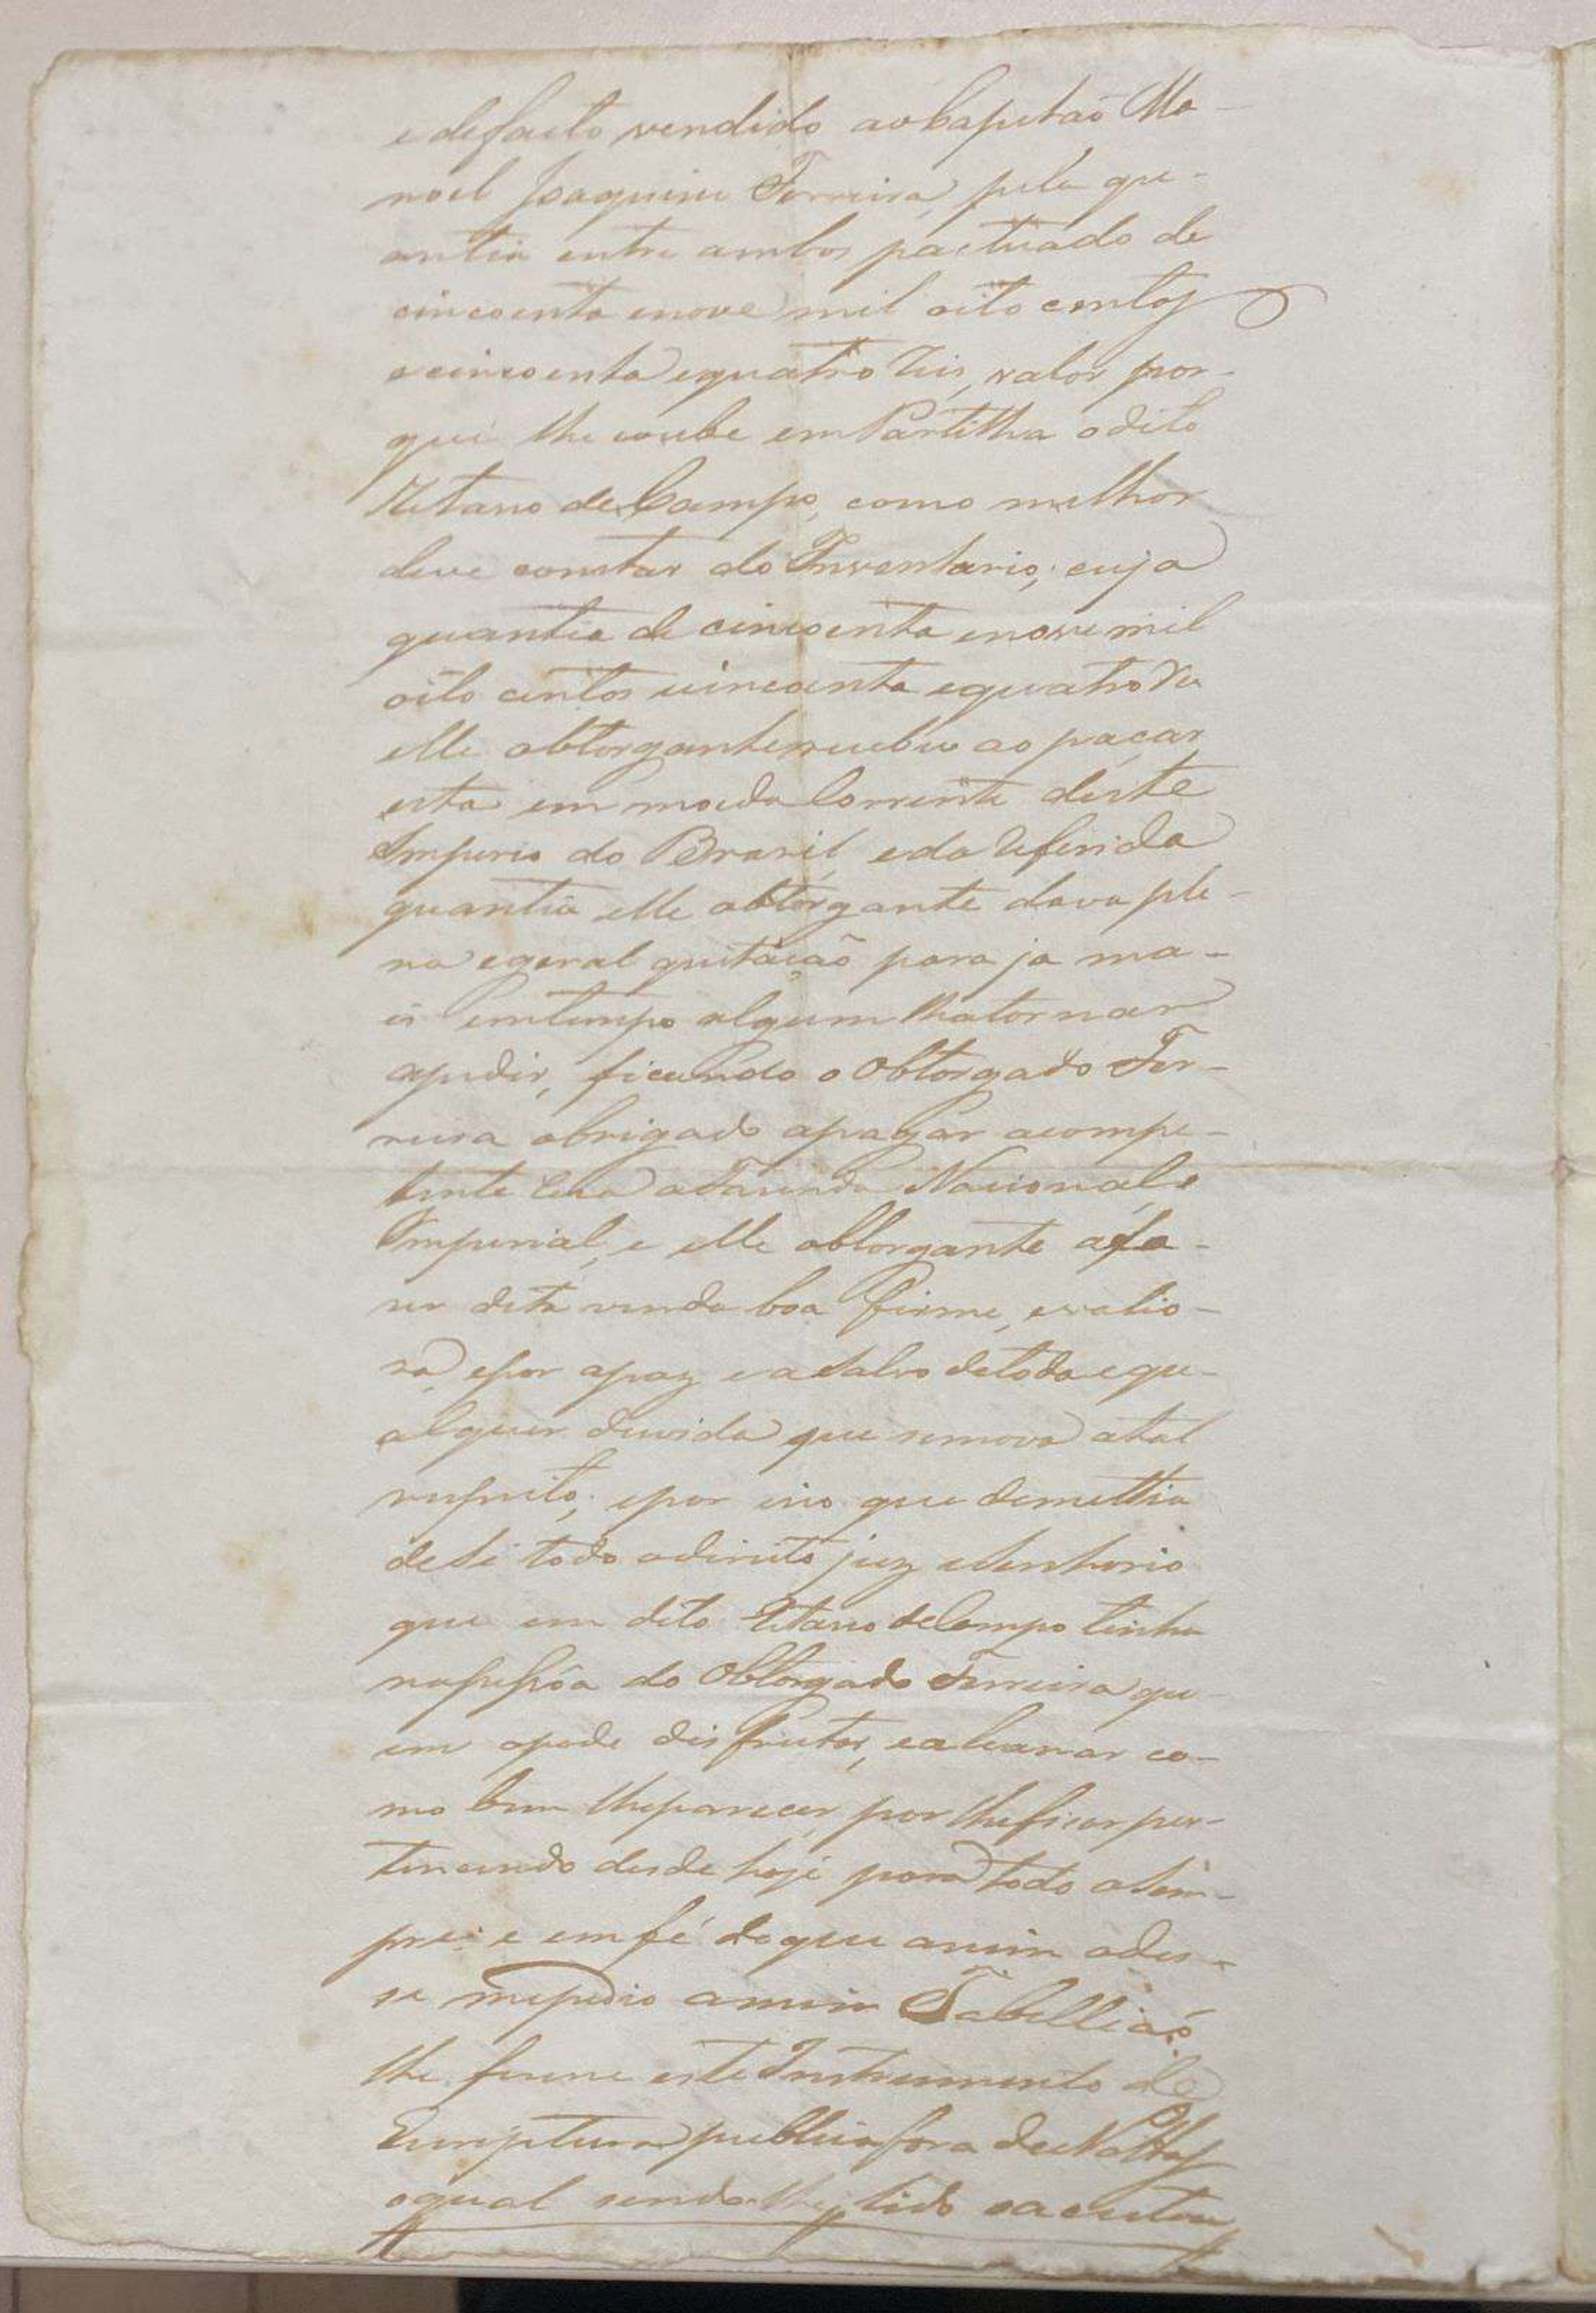 e defacto vendido ao Capitaõ Ma-
noel Joaquim Ferreira, pela qu-
antia entre ambos pactuado de
cincoenta enove mil oito centos
ecincoenta equatro Reis, valor por-
que lhe coube em Partilha odito
Retasso de Campo, como melhor
deve constar do Inventario; cuja
quantia de cincoenta enove mil
oito centos ecincoenta equatro rs
elle obtorgante recebeu ao paçar
esta em moeda Corrente deste
Imperio do Brasil, eda Referida
quantia elle obtorgante dava ple-
na egeral quitaçaõ para ja ma-
is emtempo algum lha tornar
apedir, ficando o Obtorgado Fer-
reira obrigado apagar acompe-
tente Ciza aFazenda Nacional e
Imperial, e elle obtorgante afa-
zer dita venda boa firme, evalio-
sa, epor apaz eaSalvo detoda equ-
alquer duvida que semova atal
respeito; epor isso que demettia
deSi todo odireito juz eSenhorio
que em dito Retasso deCampo tinha
napessôa do Obtorgado Ferreira qu-
em apode disfrutar, ealcansar co-
mo bem lheparecer por lheficar per-
tencendo desde hoje para todo oSem-
pre: e emfé deque assim odis-
se mepedio amim Tabelliaõ
lhe fizesse este Instrumento de
Escriptura publica fora deNottas
oqual sendo-lhe lido eaceitou